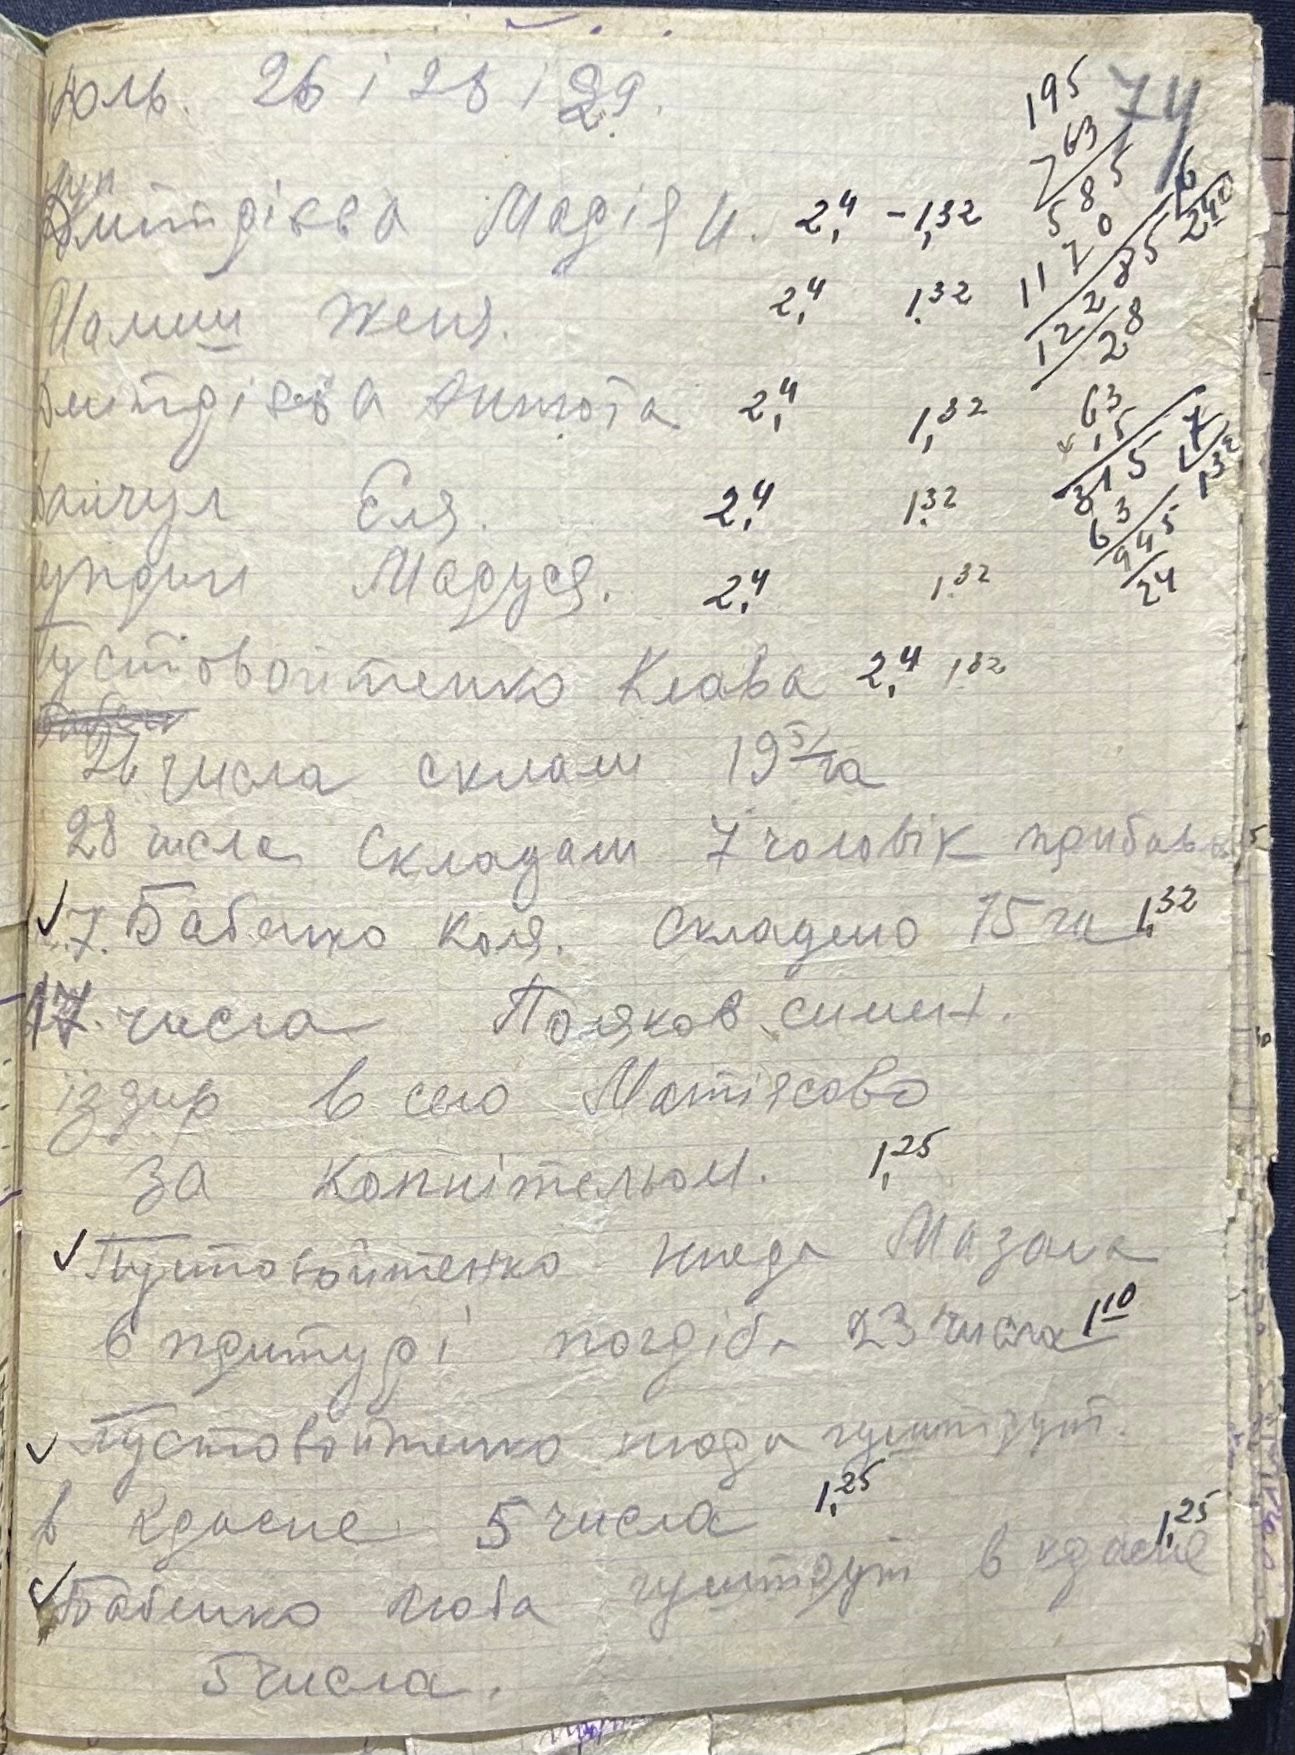 юль. 26 і 28 і 29.
74
195
63
7
585
1170
12285
1228
6
240
Дмитрієва Марія И. 2,4 - 1,32
Мамиш Женя. 2,4 1,32
Дмитрієва Анюта 2,4 1,32
63
15
315
63
945
24
17
132
Еля. 2,4 1,32
Маруся. 2,4 1,32
Пустовойтенко Клава 2,4 1,32
26 числа склали 19 5/га
28 числа Складали 7 чоловік прибавь
7. Бабенко Коля. Складено 15 га 1,32
17. числа Поляков симен.
їздир в село Матіясово
за Копнітельом. 1,25
Пустовойтенко Мазала
в притурі погріб. 23 числа 1,10
Пустовойтенко люда
в красне 5 числа 1,25
Бабенко Люба в красне 1,25
5 числа.